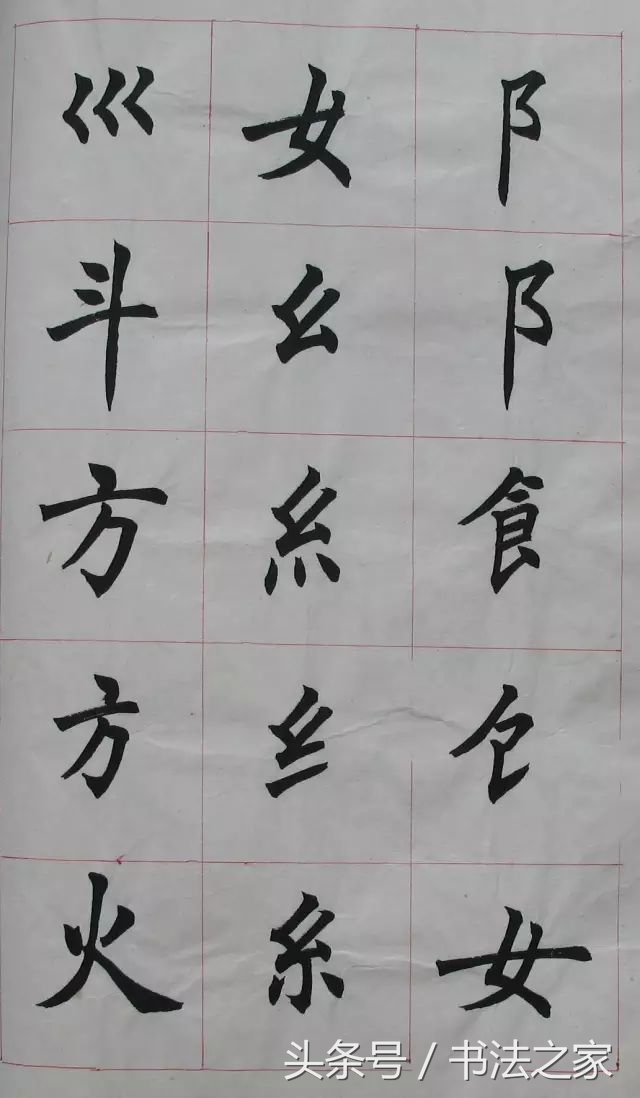 阝阝飠饣女
女幺糹纟糸
巛斗方方火
头条号 / 书法之家